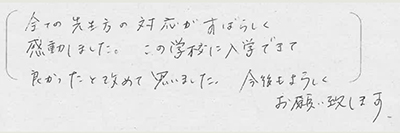 全ての先生方の対応がすばらしく
感動しました。この学校に入学できて
良かったと改めて思いました。今後もよろしく
お願い致します.